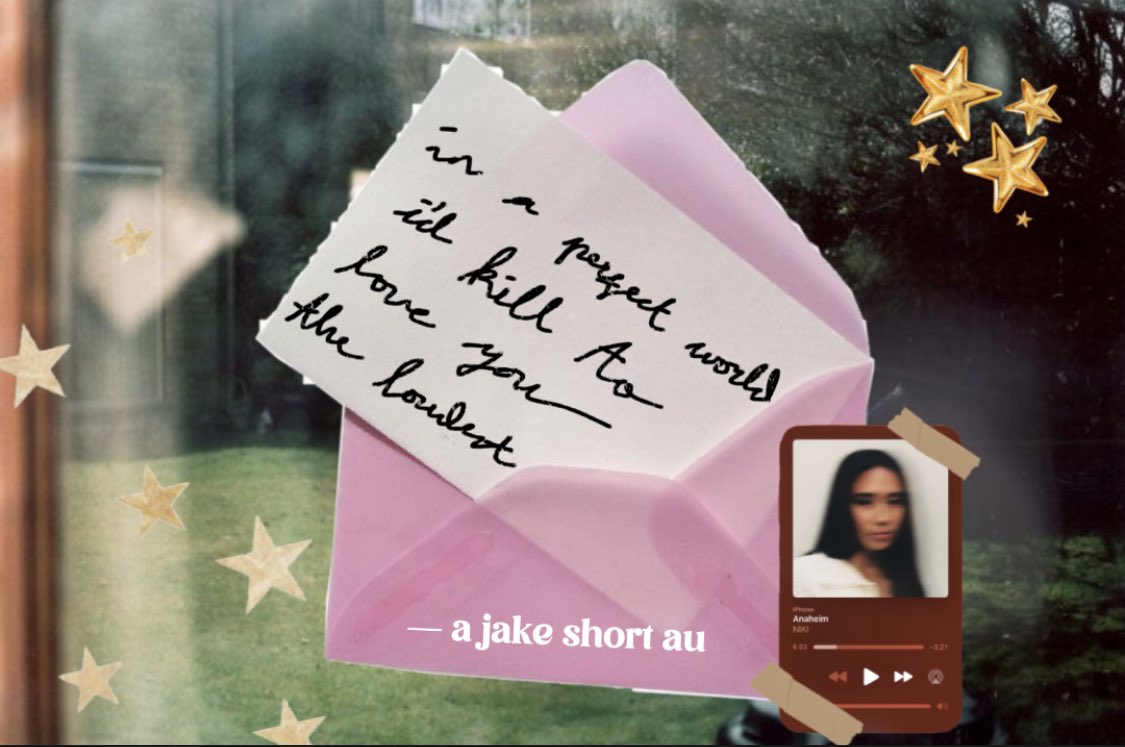 in a perfect world
i'd kill to
love you
the loudest
— a jake short au
iPhone
Anaheim
NIKI
0:53
-3:21